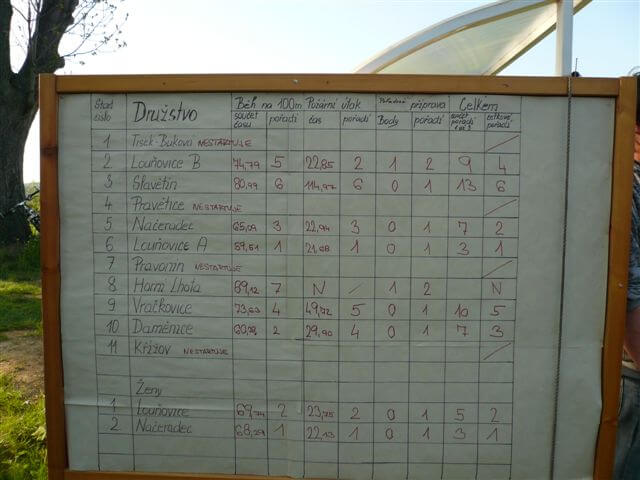 Start číslo Družstvo Běh na 100m Požární útok Pořadová příprava Celkem
součet času pořadí čas pořadí Body pořadí součet pořadí celkové pořadí
1 Tisek-Buková NESTARTUJE /
2 Louňovice B 74,79 5 22,85 2 1 2 9 4
3 Slavětín 80,99 6 114,97 6 0 1 13 6
4 Pravětice NESTARTUJE /
5 Načeradec 65,09 3 22,94 3 0 1 7 2
6 Louňovice A 59,51 1 21,08 1 0 1 3 1
7 Pravonín NESTARTUJE /
8 Horní Lhota 89,12 7 N / 1 2 N
9 Vračkovice 73,63 4 49,72 5 0 1 10 5
10 Daměnice 2 29,90 4 0 1 7 3
11 Křížov NESTARTUJE /
Ženy
1 Louňovice 69,74 2 23,75 2 0 1 5 2
2 Načeradec 68,29 1 22,13 1 0 1 3 1